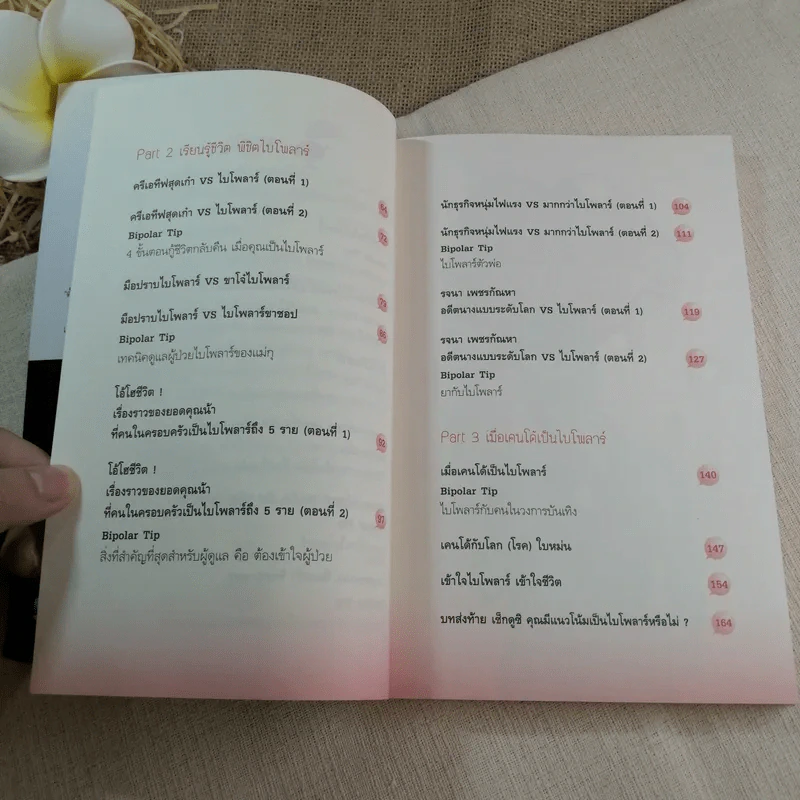 Part 2 เรียนรู้ชีวิต พิชิตไบโพลาร์
ครีเอทีฟสุดเก๋า VS ไบโพลาร์ (ตอนที่ 1)
ครีเอทีฟสุดเก๋า VS ไบโพลาร์ (ตอนที่ 2)
Bipolar Tip
4 ขั้นตอนกู้ชีวิตกลับคืน เมื่อคุณเป็นไบโพลาร์
มือปราบไบโพลาร์ VS ขาโจ๋ไบโพลาร์
มือปราบไบโพลาร์ VS ไบโพลาร์ขาชอป
Bipolar Tip
เทคนิคดูแลผู้ป่วยไบโพลาร์ของแม่กุ
โอ้โฮชีวิต !
เรื่องราวของยอดคุณน้า
ที่คนในครอบครัวเป็นไบโพลาร์ถึง 5 ราย (ตอนที่ 1) 92
โอ้โฮชีวิต !
เรื่องราวของยอดคุณน้า
ที่คนในครอบครัวเป็นไบโพลาร์ถึง 5 ราย (ตอนที่ 2) 97
Bipolar Tip
สิ่งที่สำคัญที่สุดสำหรับผู้ดูแล คือ ต้องเข้าใจผู้ป่วย
นักธุรกิจหนุ่มไฟแรง VS มากกว่าไบโพลาร์ (ตอนที่ 1) 104
นักธุรกิจหนุ่มไฟแรง VS มากกว่าไบโพลาร์ (ตอนที่ 2) 111
Bipolar Tip
ไบโพลาร์ตัวพ่อ
รจนา เพชรกัณหา
อดีตนางแบบระดับโลก VS ไบโพลาร์ (ตอนที่ 1) 119
รจนา เพชรกัณหา
อดีตนางแบบระดับโลก VS ไบโพลาร์ (ตอนที่ 2) 127
Bipolar Tip
ยากับไบโพลาร์
Part 3 เมื่อเคนโด้เป็นไบโพลาร์
เมื่อเคนโด้เป็นไบโพลาร์ 140
Bipolar Tip
ไบโพลาร์กับคนในวงการบันเทิง
เคนโด้กับโลก (โรค) ใบหม่น 147
เข้าใจไบโพลาร์ เข้าใจชีวิต 154
บทส่งท้าย เช็กดูซิ คุณมีแนวโน้มเป็นไบโพลาร์หรือไม่ ? 164